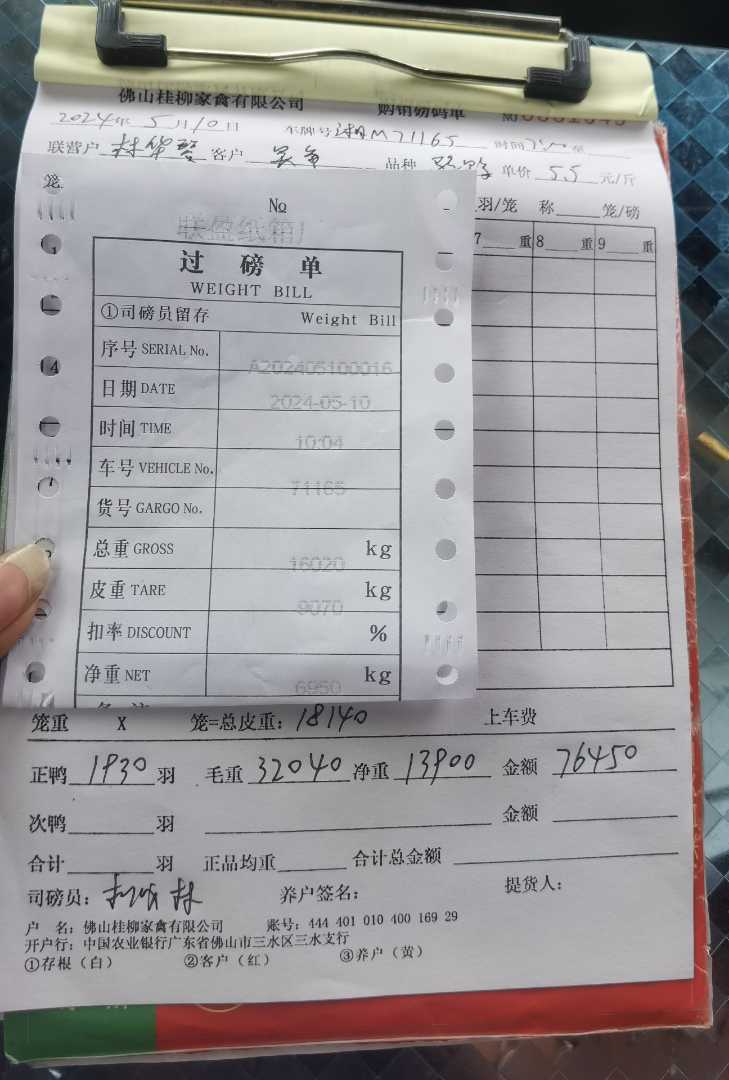 佛山桂柳家禽有限公司 购销磅码单 №
2024年5月10日 车牌号 湘M71165 时间
联营户 客户 品种 单价 5.5 元/斤
羽/笼 称 笼/磅
7 重 8 重 9 重
笼
№
联盈纸箱厂
过磅单
WEIGHT BILL
①司磅员留存 Weight Bill
序号 SERIAL No. A202405100016
日期 DATE 2024-05-10
时间 TIME 10:04
车号 VEHICLE No. 71165
货号 GARGO No.
总重 GROSS 16020 kg
皮重 TARE 9070 kg
扣率 DISCOUNT %
净重 NET 6950 kg
笼重 X 笼=总皮重: 18140 上车费
正鸭 1930 羽 毛重 32040 净重 13900 金额 76450
次鸭 羽 金额
合计 羽 正品均重 合计总金额
司磅员: 养户签名: 提货人:
户 名: 佛山桂柳家禽有限公司 账号: 444 401 010 400 169 29
开户行: 中国农业银行广东省佛山市三水区三水支行
①存根（白） ②客户（红） ③养户（黄）